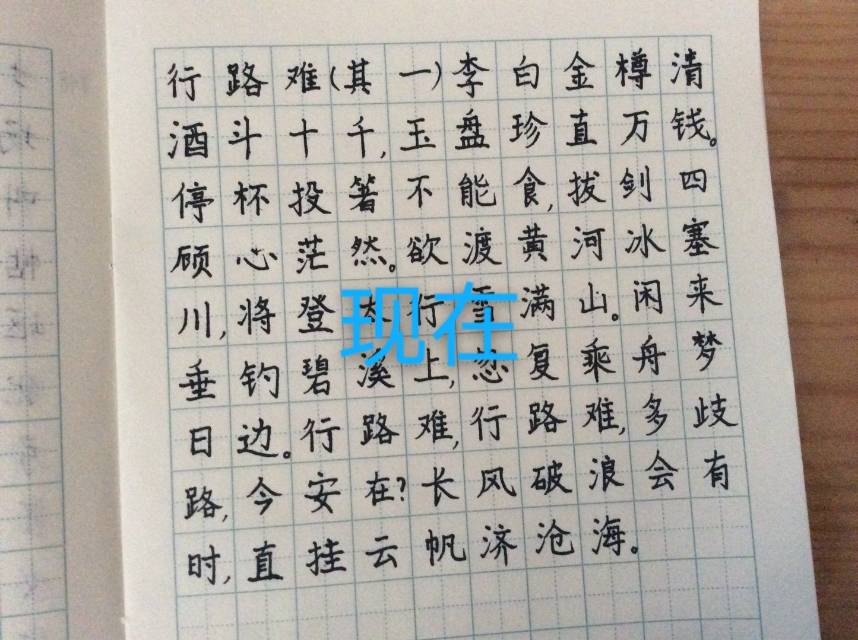 行路难(其一)李白金樽清
酒斗十千,玉盘珍直万钱。
停杯投箸不能食,拔剑四
顾心茫然。欲渡黄河冰塞
川,将登太行雪满山。闲来
垂钓碧溪上,忽复乘舟梦
日边。行路难,行路难,多歧
路,今安在?长风破浪会有
时,直挂云帆济沧海。
现在